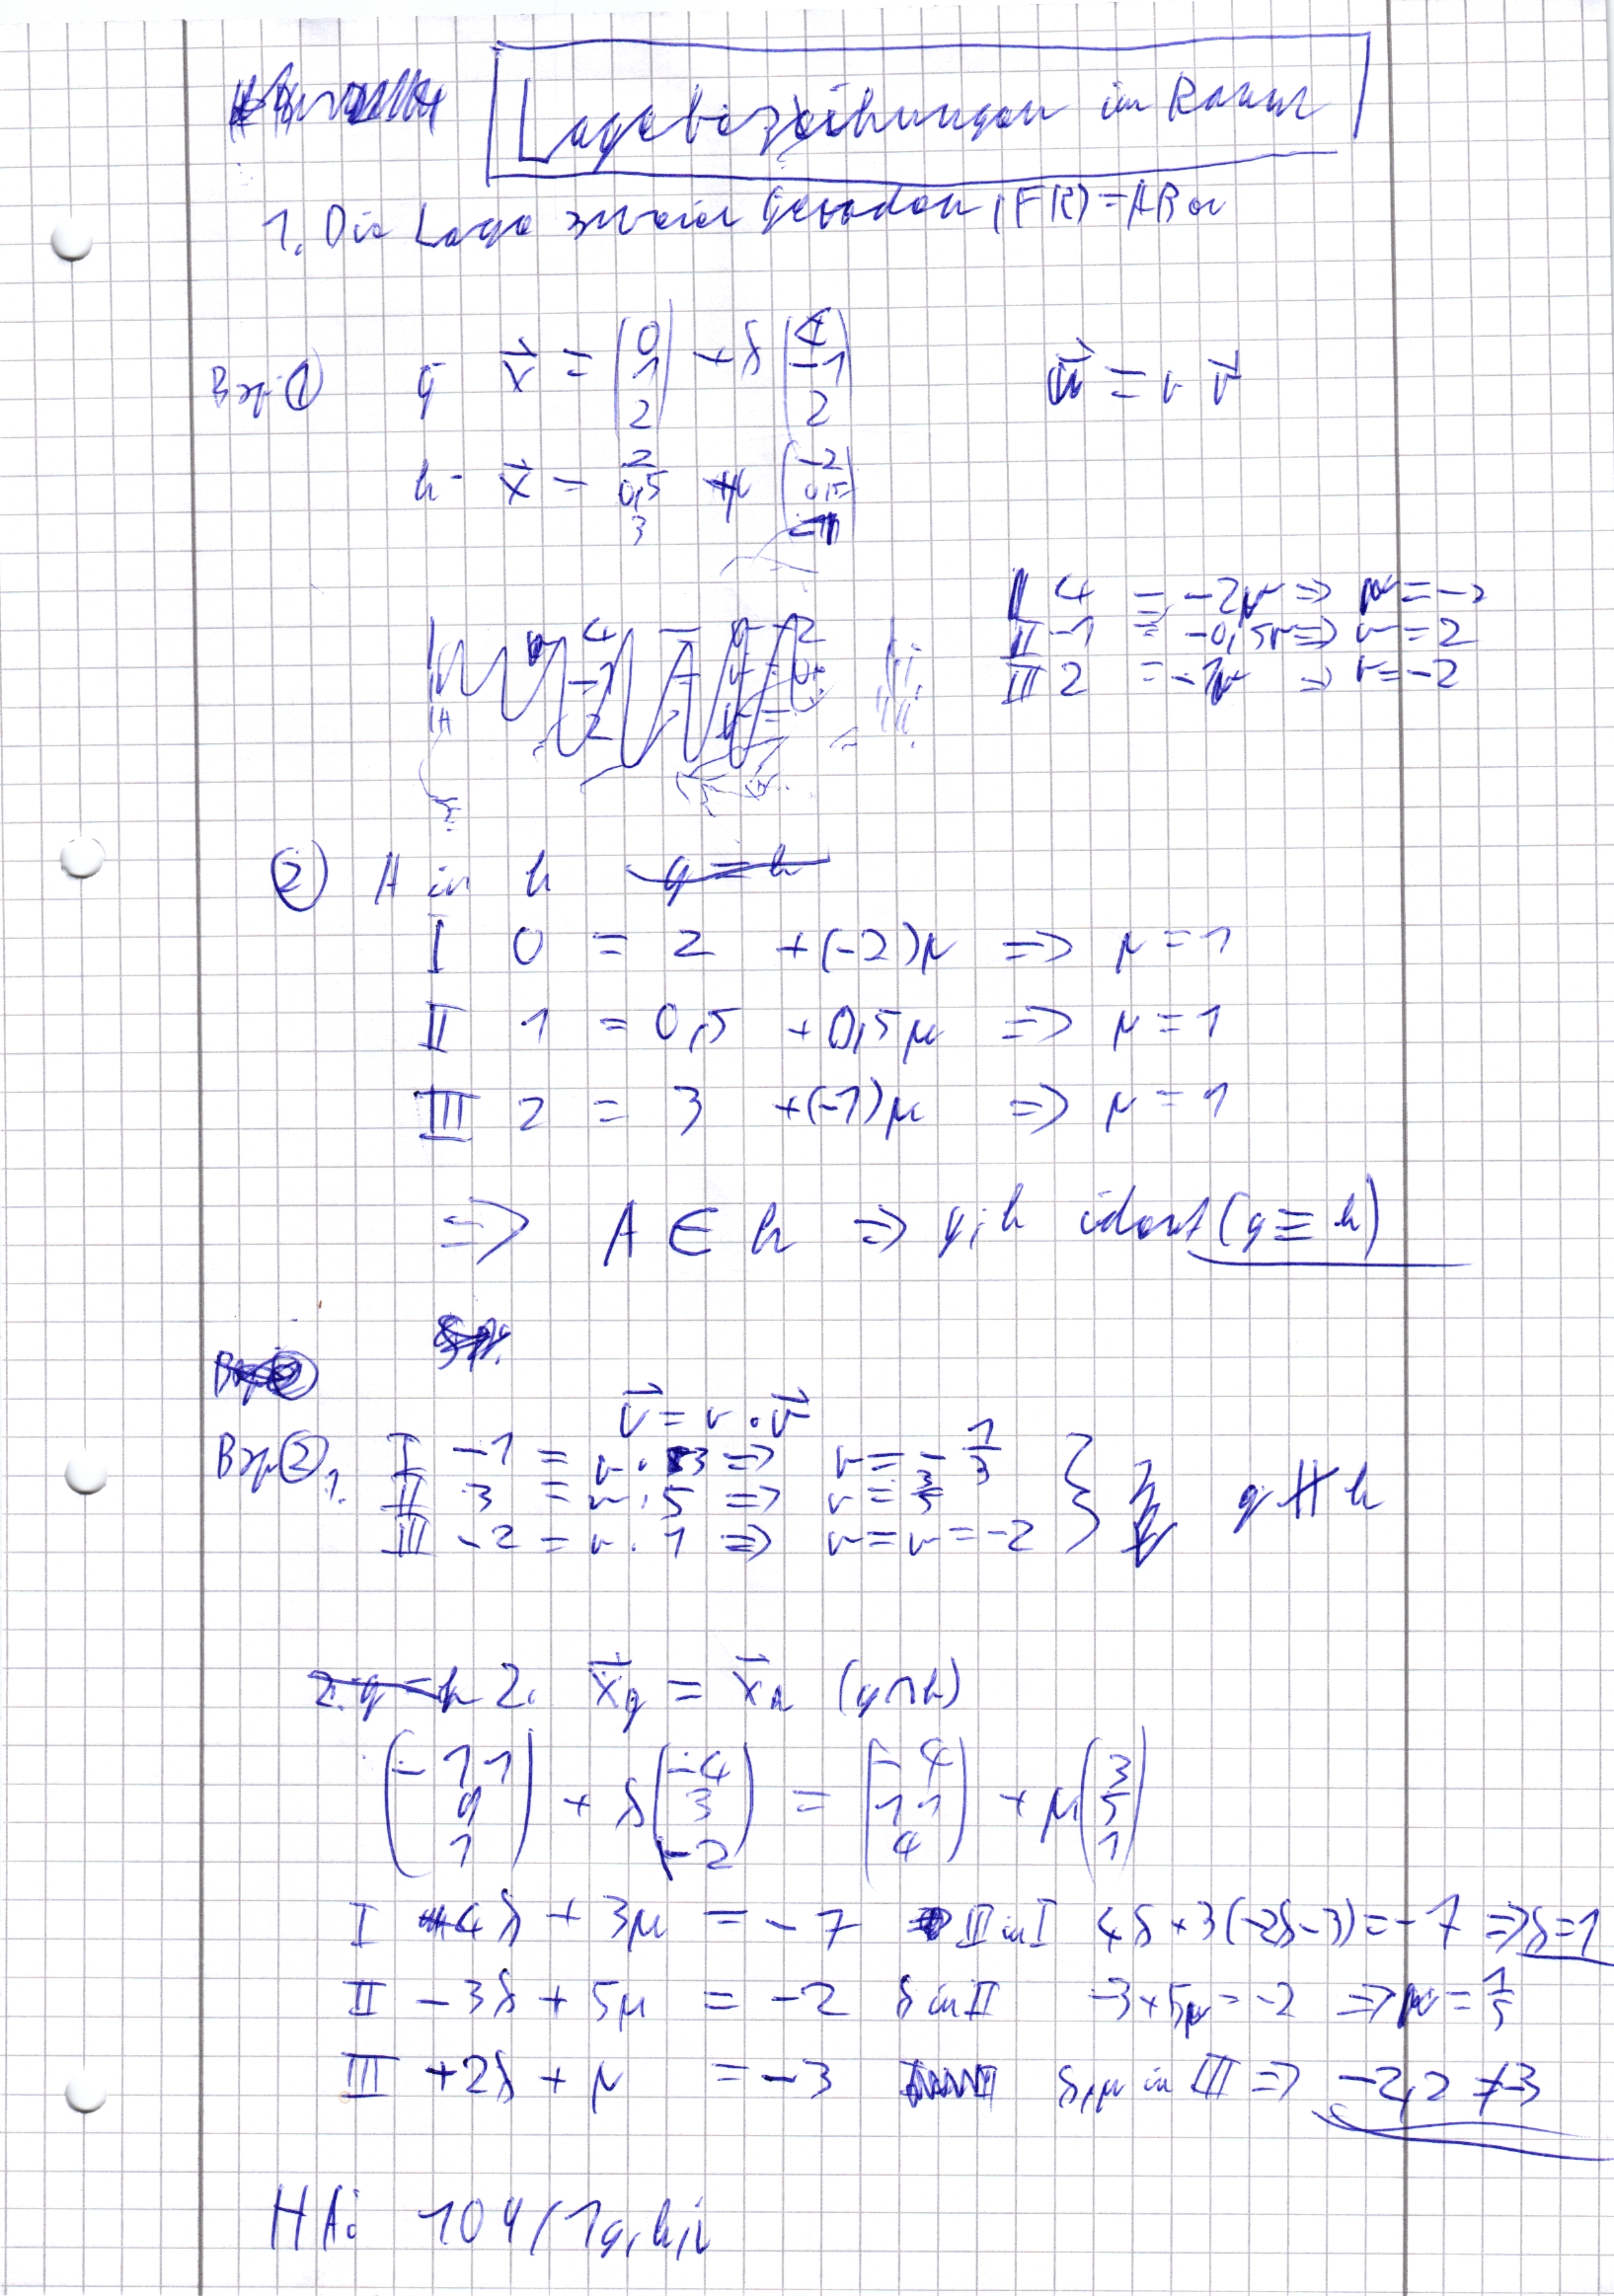 Lagebeziehungen im Raum
1. Die Lage zweier Geraden (FR) = AB
Bsp ① g x⃗ = (0 1 2) + λ (4 -1 2) u⃗ = r v⃗
h: x⃗ = 2 0,5 3 + μ (-2 0,5 -1)
I 4 = -2r => r = -2
II -1 = -0,5r => r = 2
III 2 = -1r => r = -2
② A in h g = h
I 0 = 2 + (-2)μ => μ = 1
II 1 = 0,5 + 0,5μ => μ = 1
III 2 = 3 + (-1)μ => μ = 1
=> A ∈ h => g, h ident (g ≡ h)
v⃗ = r · v⃗
Bsp ② 1. I -1 = r · 3 => r = - 1/3
II 3 = r · 5 => r = 3/5
III -2 = r · 1 => r = r = -2 } g ∦ h
2. g = h 2. x⃗g = x⃗h (g ∩ h)
(-11 9 1) + λ (-4 3 -2) = (-4 11 4) + μ (3 5 1)
I 4λ + 3μ = -7 III in I 4λ + 3(-2λ-3) = -7 => λ = 1
II -3λ + 5μ = -2 λ in II -3 + 5μ = -2 => μ = 1/5
III +2λ + μ = -3 λ, μ in III => -2,2 ≠ -3
HA: 104/1g,h,i